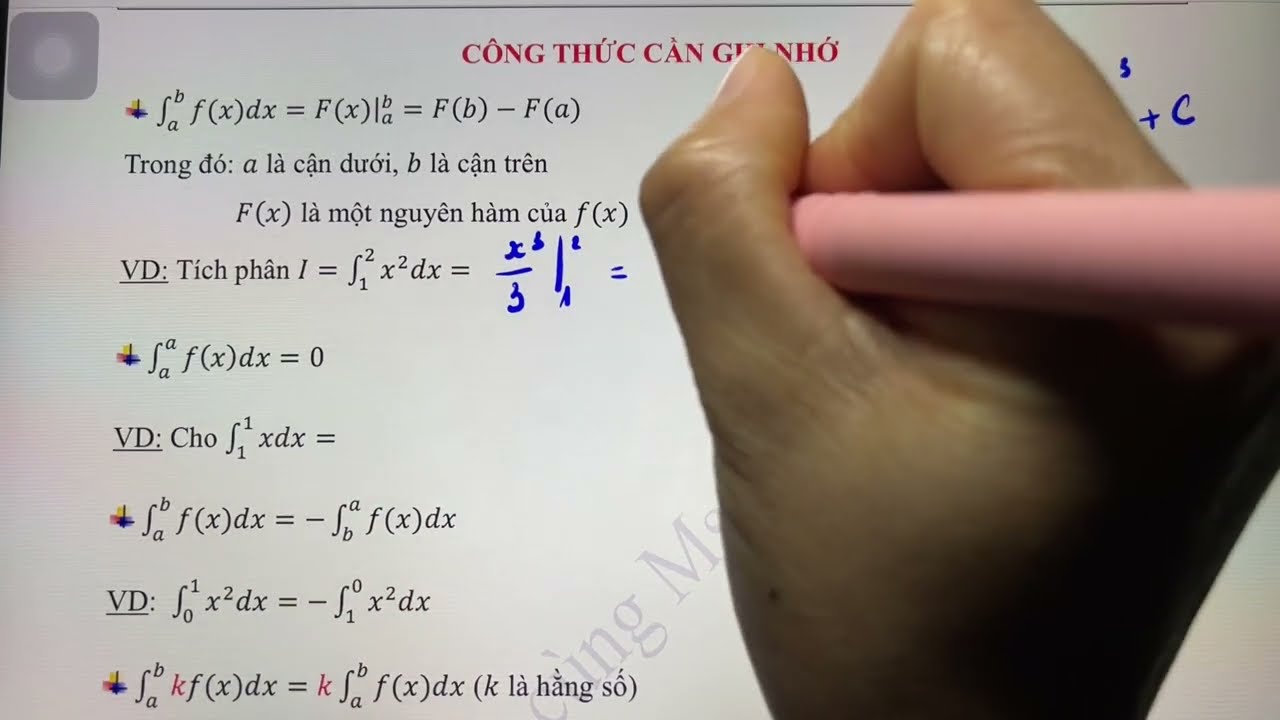 CÔNG THỨC CẦN NHỚ
∫ₐᵇ f(x)dx = F(x)|ₐᵇ = F(b) − F(a)
3
+ C
Trong đó: a là cận dưới, b là cận trên
F(x) là một nguyên hàm của f(x)
VD: Tích phân I = ∫₁² x²dx = x³/3 |₁² =
∫ₐᵃ f(x)dx = 0
VD: Cho ∫₁¹ xdx =
∫ₐᵇ f(x)dx = − ∫_bᵃ f(x)dx
VD: ∫₀¹ x²dx = − ∫₁⁰ x²dx
∫ₐᵇ kf(x)dx = k ∫ₐᵇ f(x)dx (k là hằng số)
cùng